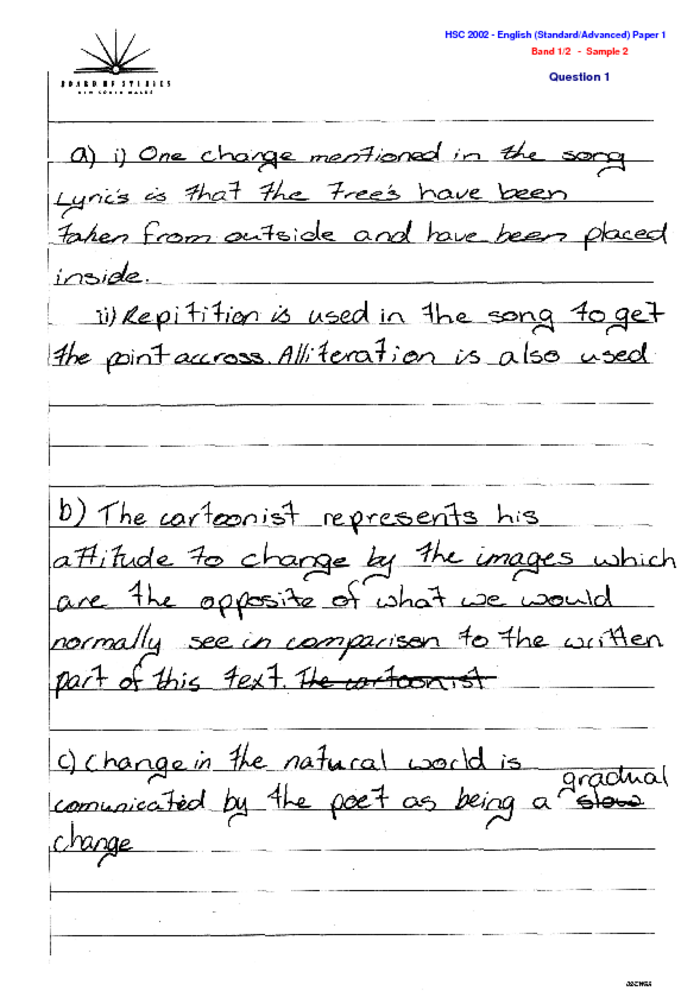 HSC 2002 - English (Standard/Advanced) Paper 1
Band 1/2 - Sample 2
Question 1
BOARD OF STUDIES
NEW SOUTH WALES
a) i) One change mentioned in the song
Lyric's is that the tree's have been
taken from outside and have been placed
inside.
ii) Repitition is used in the song to get
the point accross. Alliteration is also used
b) The cartoonist represents his
attitude to change by the images which
are the opposite of what we would
normally see in comparison to the written
part of this text. The cartoonist
c) Change in the natural world is
gradual
comunicated by the poet as being a slow
change